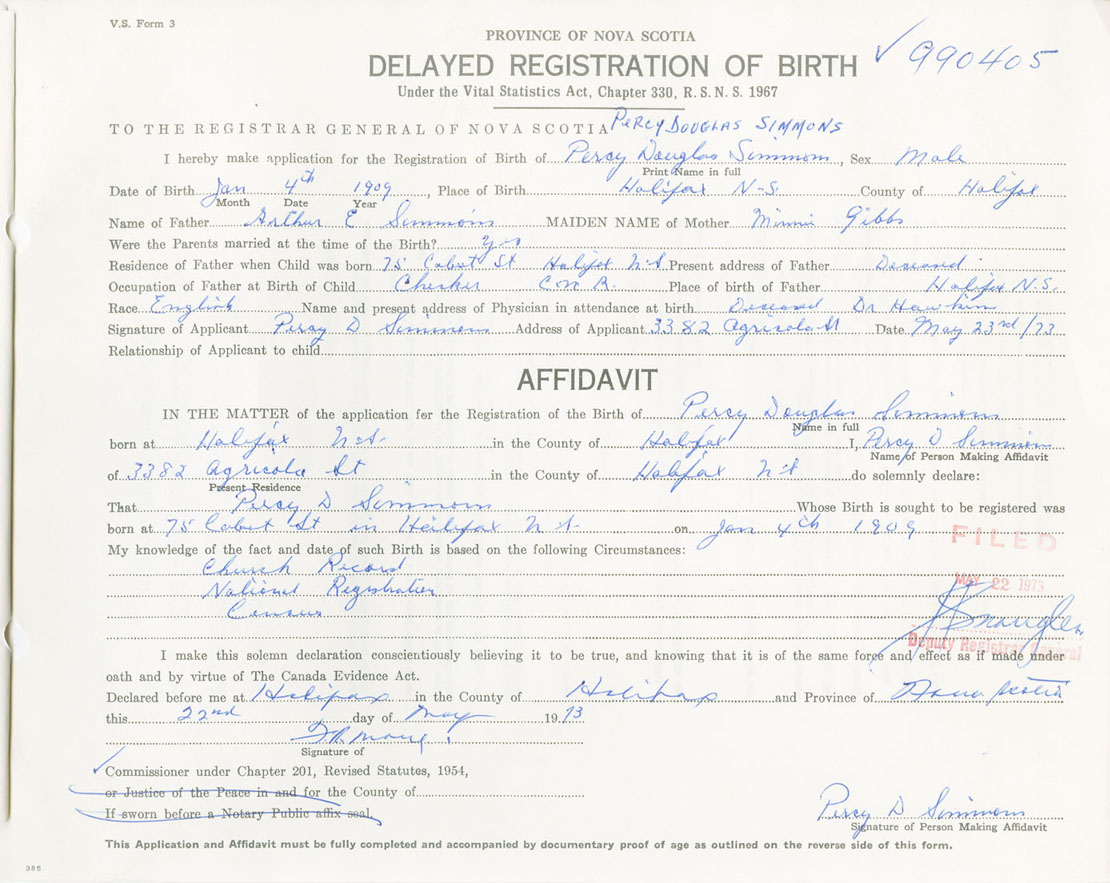 V.S. Form 3
PROVINCE OF NOVA SCOTIA
DELAYED REGISTRATION OF BIRTH
✓ 990405
Under the Vital Statistics Act, Chapter 330, R. S. N. S. 1967
TO THE REGISTRAR GENERAL OF NOVA SCOTIA PERCY DOUGLAS SIMMONS
I hereby make application for the Registration of Birth of Percy Douglas Simmons, Sex Male
Print Name in full
Date of Birth Jan 4th 1909, Place of Birth Halifax N-S. County of Halifax
Month Date Year
Name of Father Arthur E Simmons MAIDEN NAME of Mother Minnie Gibbs
Were the Parents married at the time of the Birth? Yes
Residence of Father when Child was born 75 Cabot St Halifax N.S Present address of Father Deceased
Occupation of Father at Birth of Child Checker C.N.R. Place of birth of Father Halifax N.S.
Race English Name and present address of Physician in attendance at birth Deceased Dr
Signature of Applicant Percy D Simmons Address of Applicant 3382 Agricola St Date May 23rd/73
Relationship of Applicant to child
AFFIDAVIT
IN THE MATTER of the application for the Registration of the Birth of Percy Douglas Simmons
Name in full
born at Halifax N.S. in the County of Halifax I, Percy D Simmons
Name of Person Making Affidavit
of 3382 Agricola St in the County of Halifax N.S do solemnly declare:
Present Residence
That Percy D Simmons Whose Birth is sought to be registered was
born at 75 Cabot St in Halifax N.S. on Jan 4th 1909
FILED
My knowledge of the fact and date of such Birth is based on the following Circumstances:
Church Record
MAY 22 1973
National Registration
Census
Deputy Registrar General
I make this solemn declaration conscientiously believing it to be true, and knowing that it is of the same force and effect as if made under
oath and by virtue of The Canada Evidence Act.
Declared before me at Halifax in the County of Halifax and Province of Nova Scotia
this 22nd day of May 1973
Signature of
✓ Commissioner under Chapter 201, Revised Statutes, 1954,
or Justice of the Peace in and for the County of
If sworn before a Notary Public affix seal.
Percy D Simmons
Signature of Person Making Affidavit
This Application and Affidavit must be fully completed and accompanied by documentary proof of age as outlined on the reverse side of this form.
385